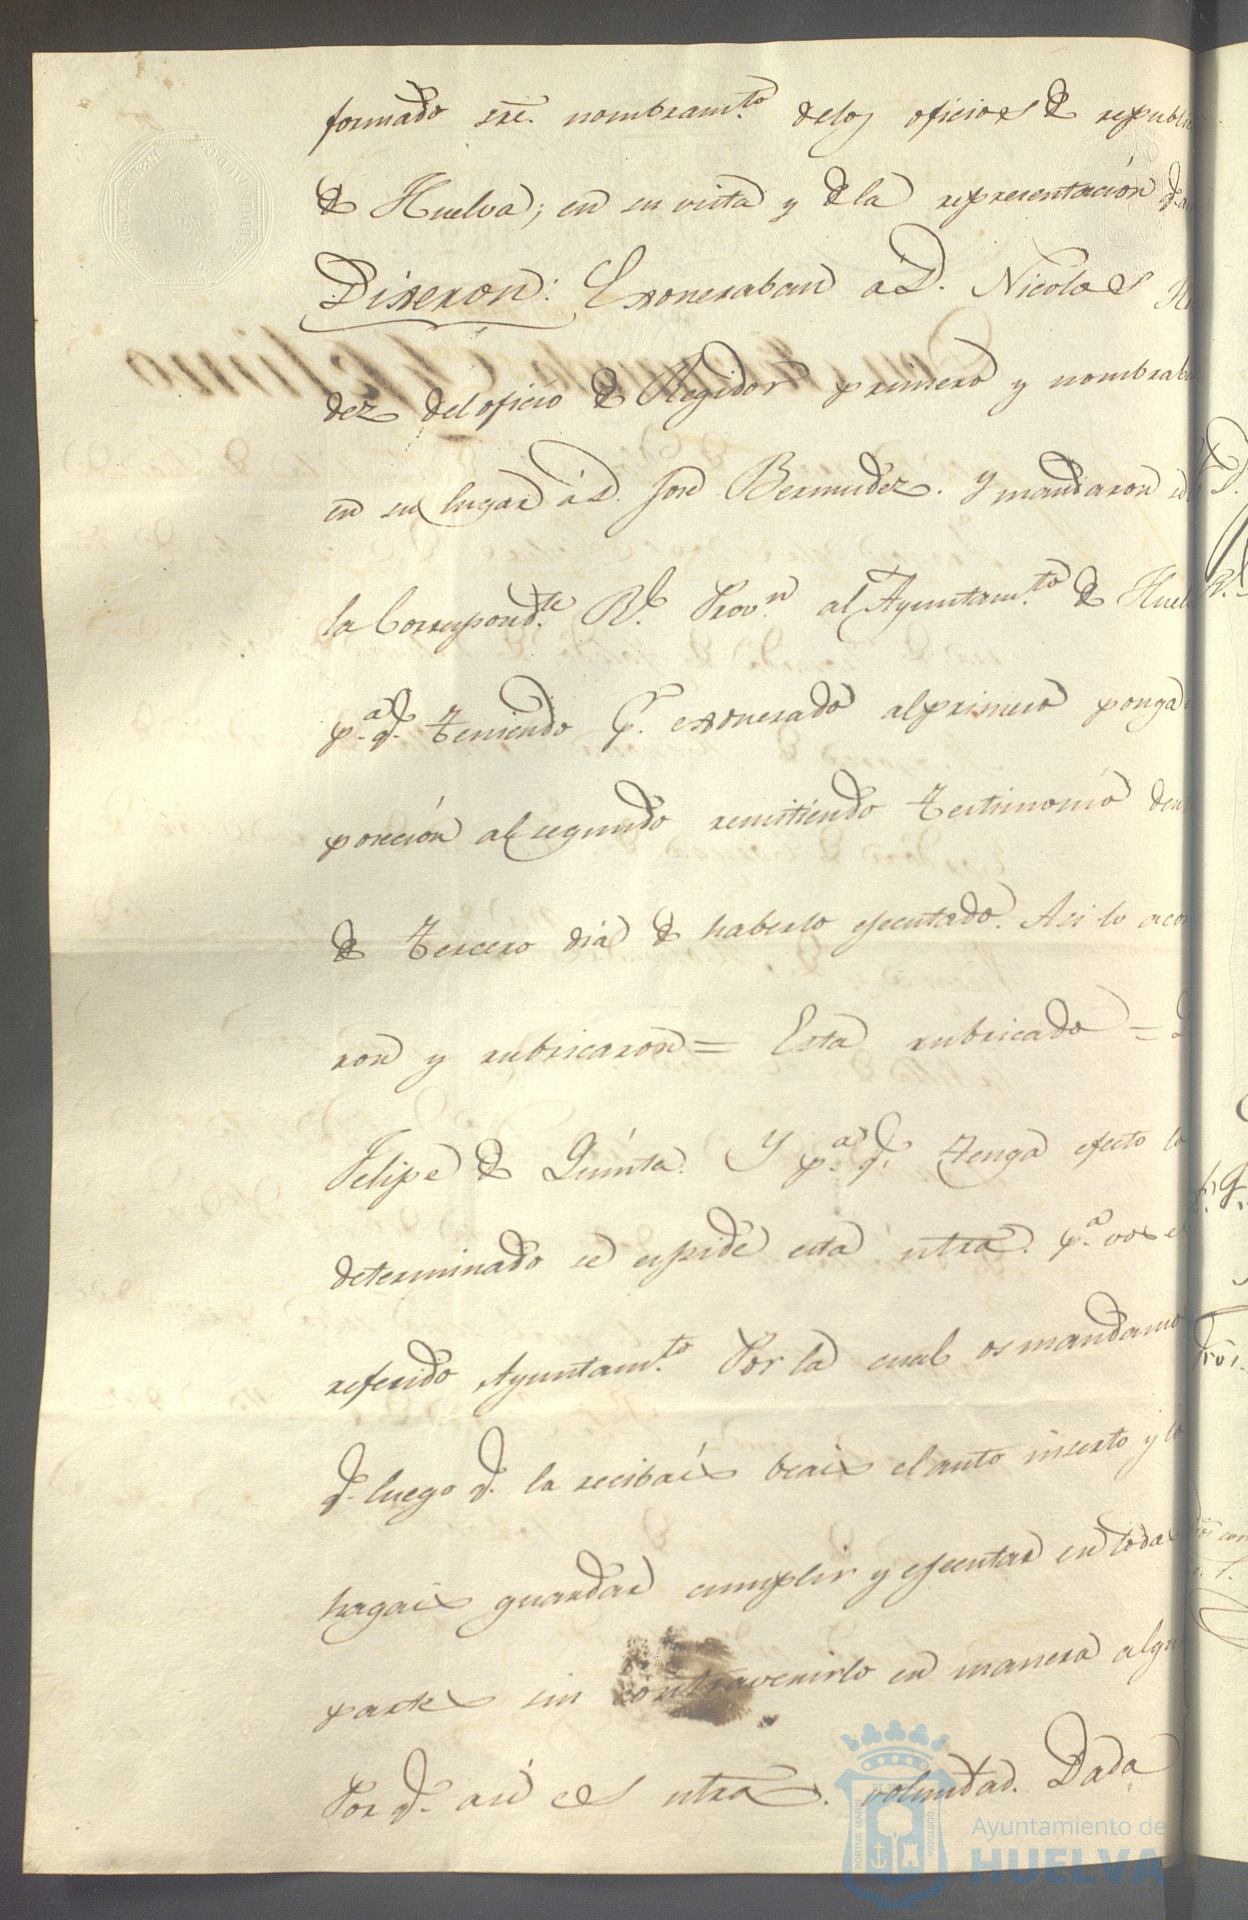 formado sre. nombramto. delos oficios de republic
de Huelva; en su vista y de la representación q.
Dixeron: Exoneraban a D. Nicolas
dez del oficio de Regidor primero y nombraba
en su lugar á D. José Bermudez. Y mandaron
la Correspondte. Rl. Provn. al Ayuntamto. de Huel
pa. q. teniendo pr. exonerado al primero ponga
poseción al segundo remitiendo testimonio den
de tercero dia de haberlo ejecutado. Asi lo aco
ron y rubricaron = Esta rubricado =
Felipe de Quinta. Y pa. q. tenga efecto lo
determinado se espide esta ntra. pa. vos el
referido Ayuntamto. Por la cual os mandamo
q. luego q. la recibais beais el auto inserto y lo
hagais guardar cumplir y ejecutar en todas
partes sin contravenirlo en manera algu
Por q. asi es ntra. voluntad. Dada
PORTUS MARIS
CUSTODIA
Ayuntamiento de
HUELVA